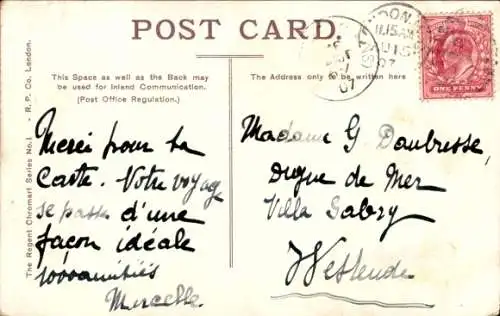 POST CARD.
This Space as well as the Back may
be used for Inland Communication.
(Post Office Regulation.)
The Address only to be written here
The Regent Chromart Series No.1. - R.P. Co. London.
LONDON.
11.15 AM
07
07
ONE PENNY
Merci pour ta
Carte. Votre voyage
se passe d'une
façon idéale
1000 amitiés
Marcelle.
Madame G Daubresse,
Digue de Mer
Villa Gabry
Westende